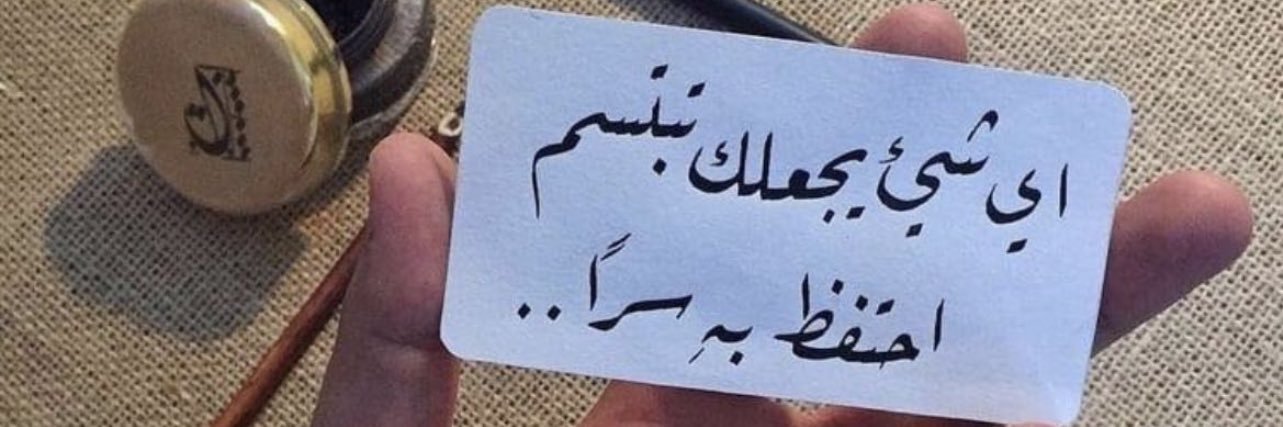 اي شيئ يجعلك تبتسم
احتفظ بهِ سراً..